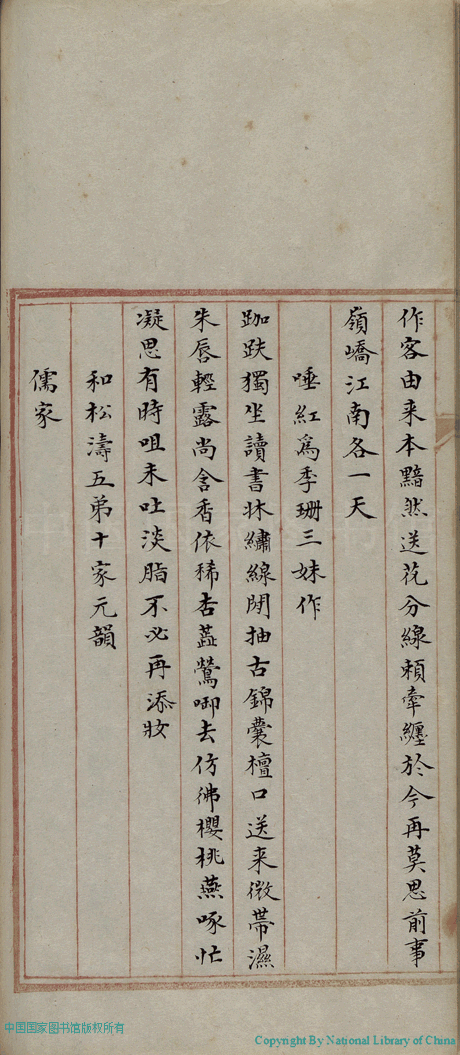 作客由来本黯然送花分線頼牽纏於今再莫思前事
嶺嶠江南各一天
唾紅為季珊三妹作
跏趺獨坐讀書牀繡線閒抽古錦囊檀口送来微帶濕
朱唇輕露尚含香依稀杏蕋鶯啣去仿彿櫻桃燕啄忙
凝思有時咀未吐淡脂不必再添妝
和松濤五弟十家元韻
儒家
中国国家图书馆版权所有
Copyright By National Library of China